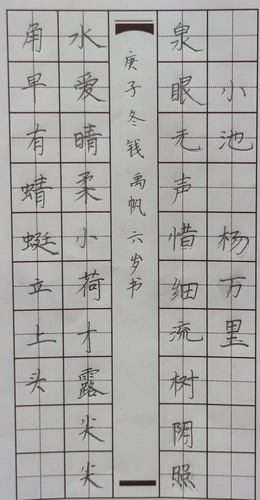 小池 杨万里
泉眼无声惜细流树阴照
庚子冬钱禹帆六岁书
水爱晴柔小荷才露尖尖
角早有蜻蜓立上头